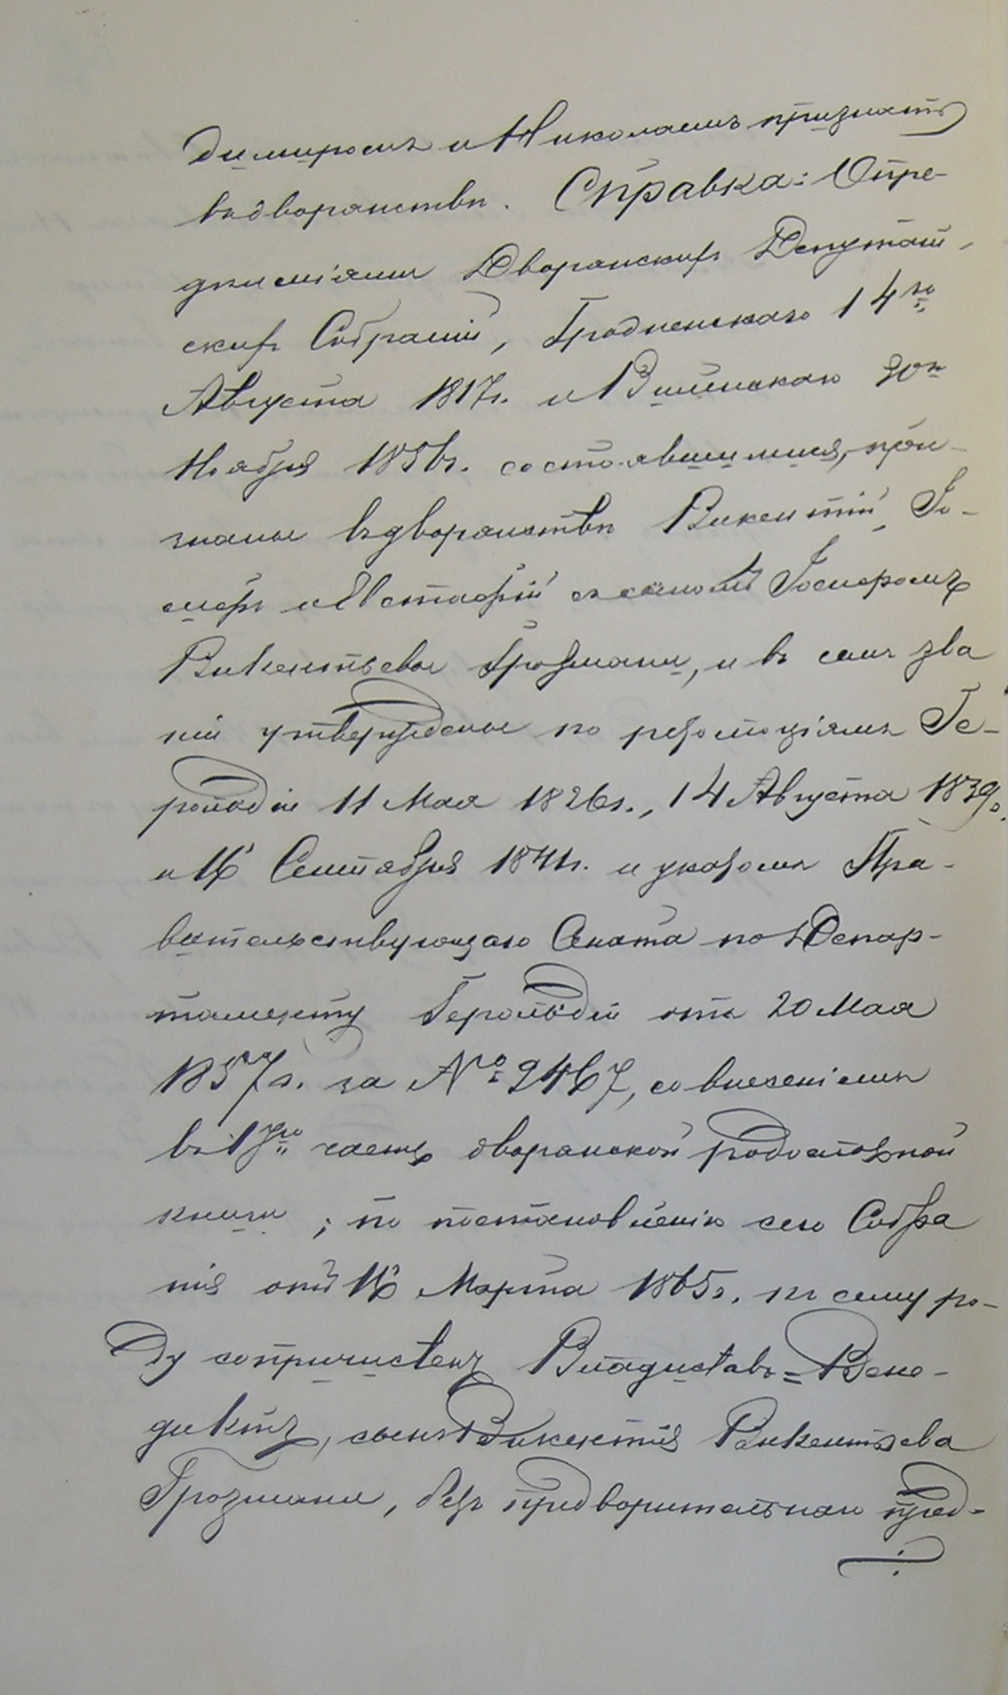 димиромъ и Николаемъ признать
въ дворянствѣ. Справка: Опре-
дѣленіями Дворянскихъ Депутат-
скихъ Собраній, Гродненскаго 14го
Августа 1817г. и Виленскаго 30го
Ноября 1856г. состоявшимися, при-
знаны въ дворянствѣ Викентій, Іо-
сифъ и Евстафій съ сыномъ Іосифомъ
Викентьевы Грозмани, и въ семъ зва
ніи утверждены по резолюціямъ Ге-
рольдіи 11 Мая 1826г., 14 Августа 1839г.
и 16 Сентября 1841г. и указомъ Пра-
вительствующаго Сената по Депар-
таменту Герольдіи отъ 20 Мая
1857г. за № 2467, со внесеніемъ
въ 1ую часть дворянской родословной
книги; по постановленію сего Собра
нія отъ 16 Марта 1865г. къ сему ро-
ду сопричисленъ Владиславъ=Бене-
диктъ, сынъ Викентія Викентьева
Грозмани, безъ предварительнаго пред-